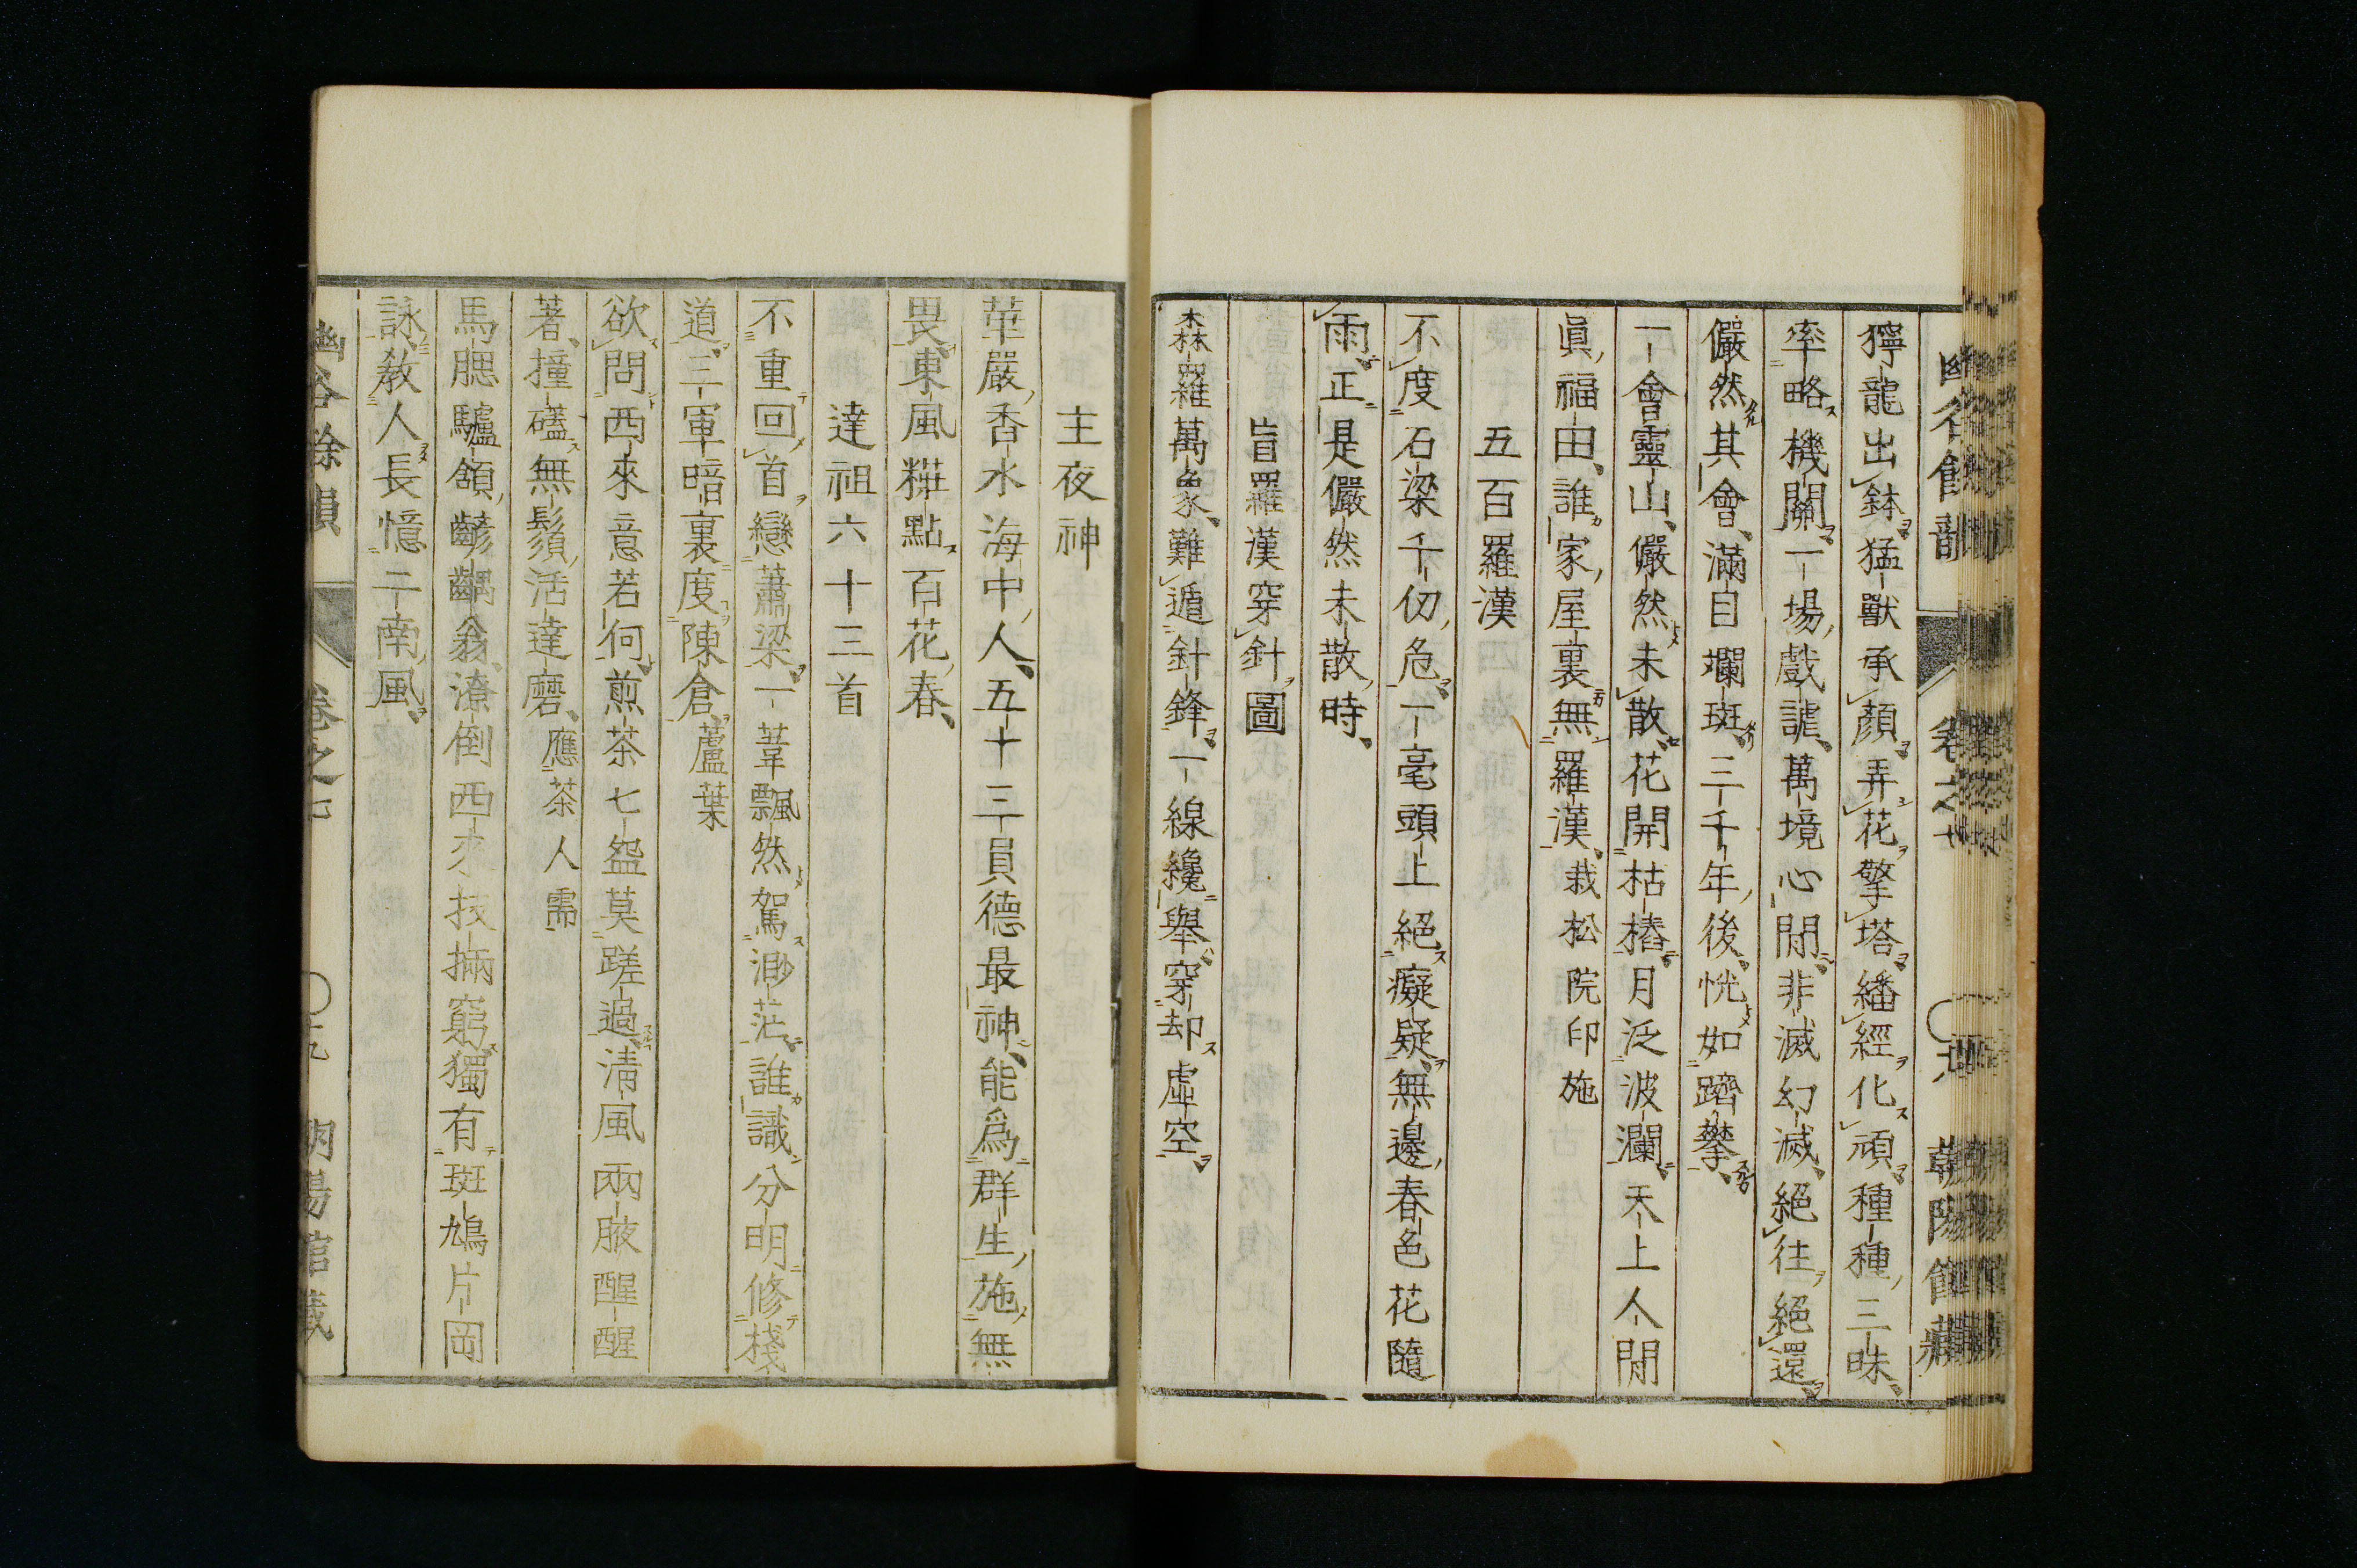 獰龍出鉢猛獸承顏弄花擎塔繙經化頑種種三昧
率略機關一場戲謔萬境心閒非滅幻滅絕往絕還
儼然其會滿目斕斑三千年後恍如躋攀
一會靈山儼然未散花開枯樁月泛波瀾天上人閒
眞福田誰家屋裏無羅漢栽松院印施
五百羅漢
不度石梁千仞危一毫頭上絕癡疑無邊春色花隨
雨正是儼然未散時
盲羅漢穿針圖
森羅萬象難遁針鋒一線纔舉穿却虛空
主夜神
華嚴香水海中人五十三員德最神能爲群生施無
畏東風粧點百花春
達祖六十三首
不重回首戀蕭梁一葦飄然駕渺茫誰識分明修棧
道三軍暗裏度陳倉蘆葉
欲問西來意若何煎茶七盌莫蹉過清風兩腋醒醒
著撞磕無鬚活達磨應茶人需
馬腮驢頷齾齵翁潦倒西來技掚窮獨有斑鳩片岡
詠敎人長憶二南風
幽谷餘韻 卷之七 ○十九 朝陽館藏